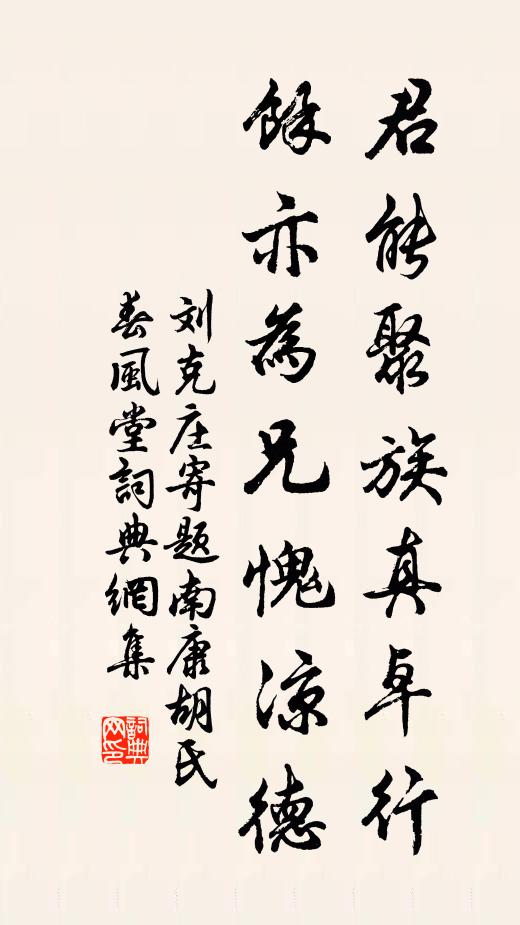 君能聚族真卓行
馀亦為兄愧凉德
刘克庄寄题南康胡氏
春風堂詞典網集
詞典网印